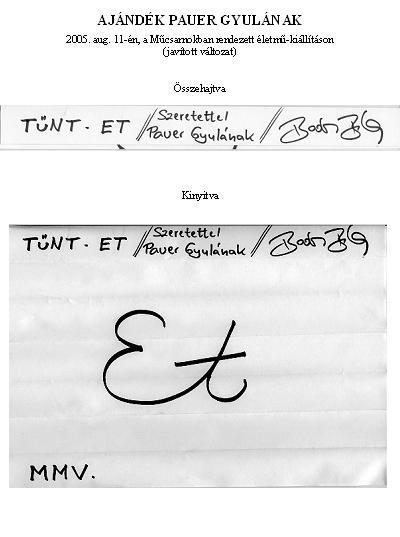 AJÁNDÉK PAUER GYULÁNAK
2005. aug. 11-én, a Műcsarnokban rendezett életmű-kiállításon
(javított változat)
Összehajtva
TŰNT - ET // Szeretettel
Pauer Gyulának //
Kinyitva
TŰNT - ET // Szeretettel
Pauer Gyulának //
Et
MMV.